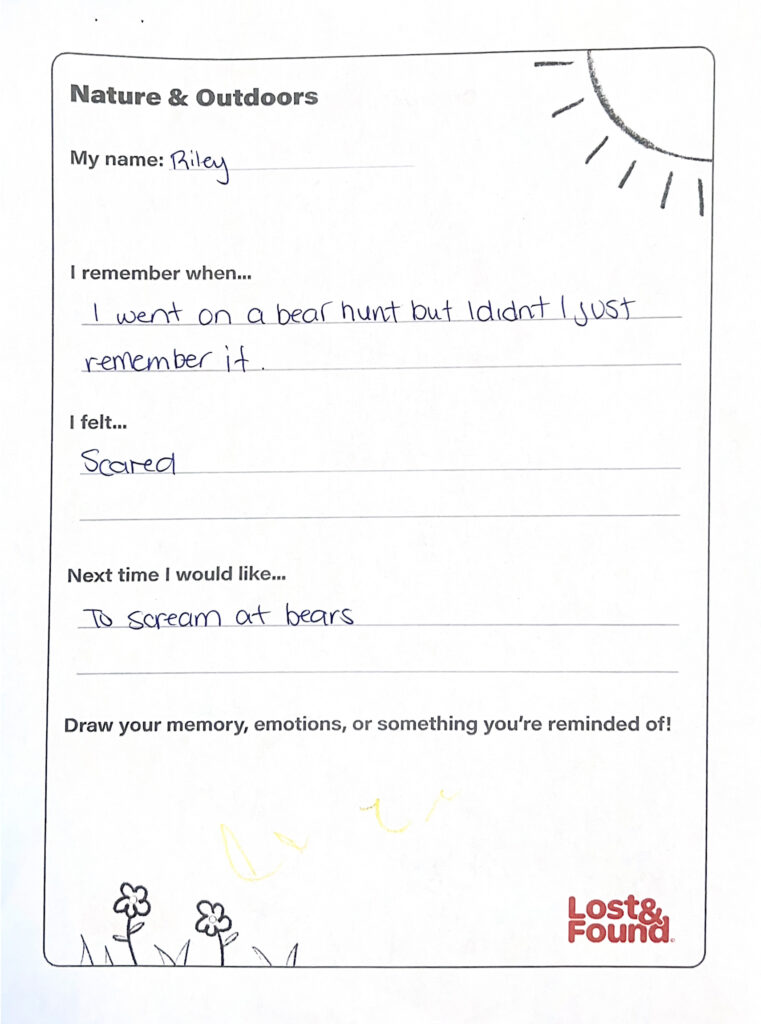 Nature & Outdoors
My name: Riley
I remember when...
I went on a bear hunt but I didnt I just
remember it.
I felt...
Scared
Next time I would like...
To scream at bears
Draw your memory, emotions, or something you're reminded of!
Lost&
Found